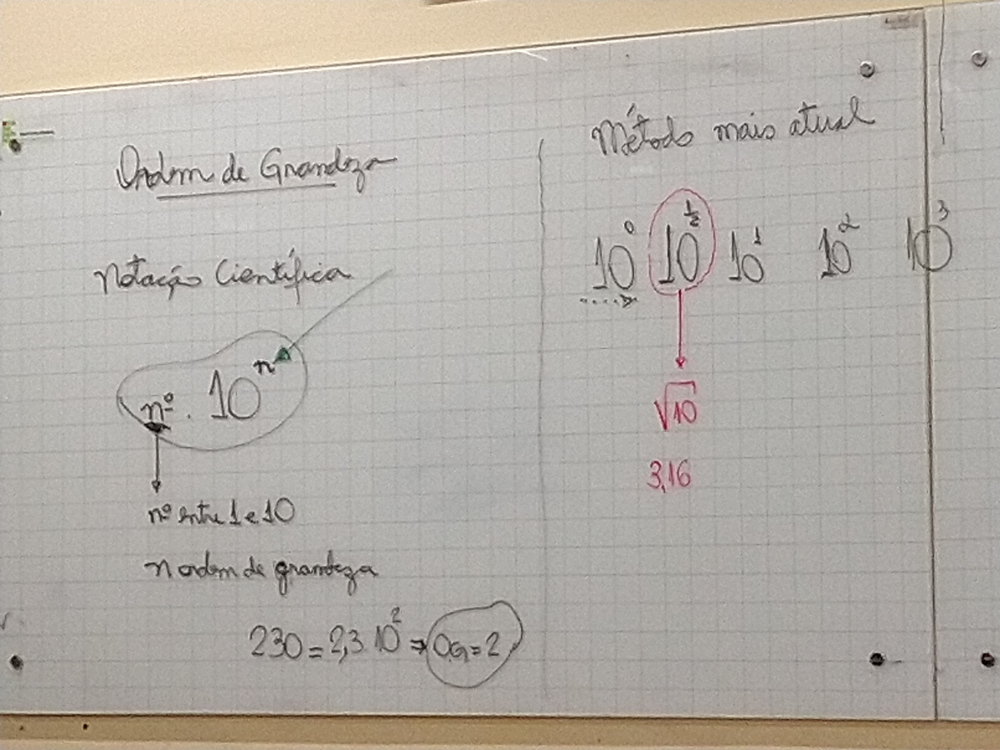 Ordem de Grandeza
Notação Científica
nº . 10ⁿ
nº entre 1 e 10
n ordem de grandeza
230 = 2,3 . 10² → OG = 2
Método mais atual
10⁰ 10^½ 10¹ 10² 10³
√10
3,16